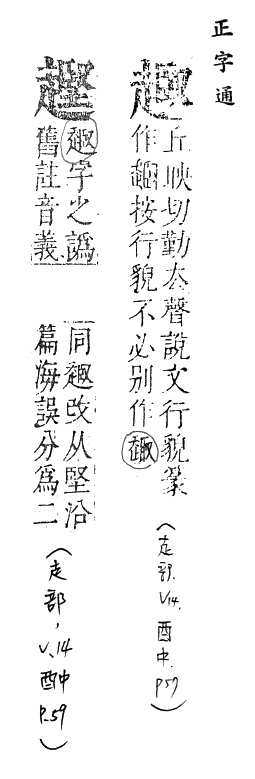 正字通
丘映切勤去聲說文行貌篆
作按行貌不必別作
(走部, V.14, 酉中, P.57)
字之譌
舊註音義
同改从堅沿
篇海誤分爲二
(走部, V.14 酉中 P.59)